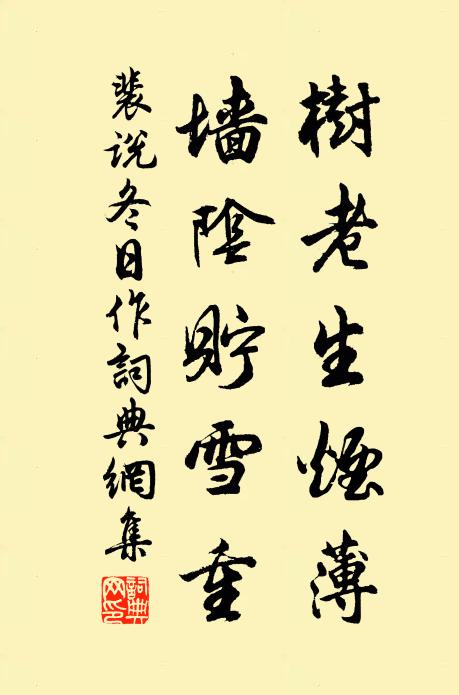 樹老生煙薄
墙陰貯雪重
裴说冬日作詞典網集
詞典网印